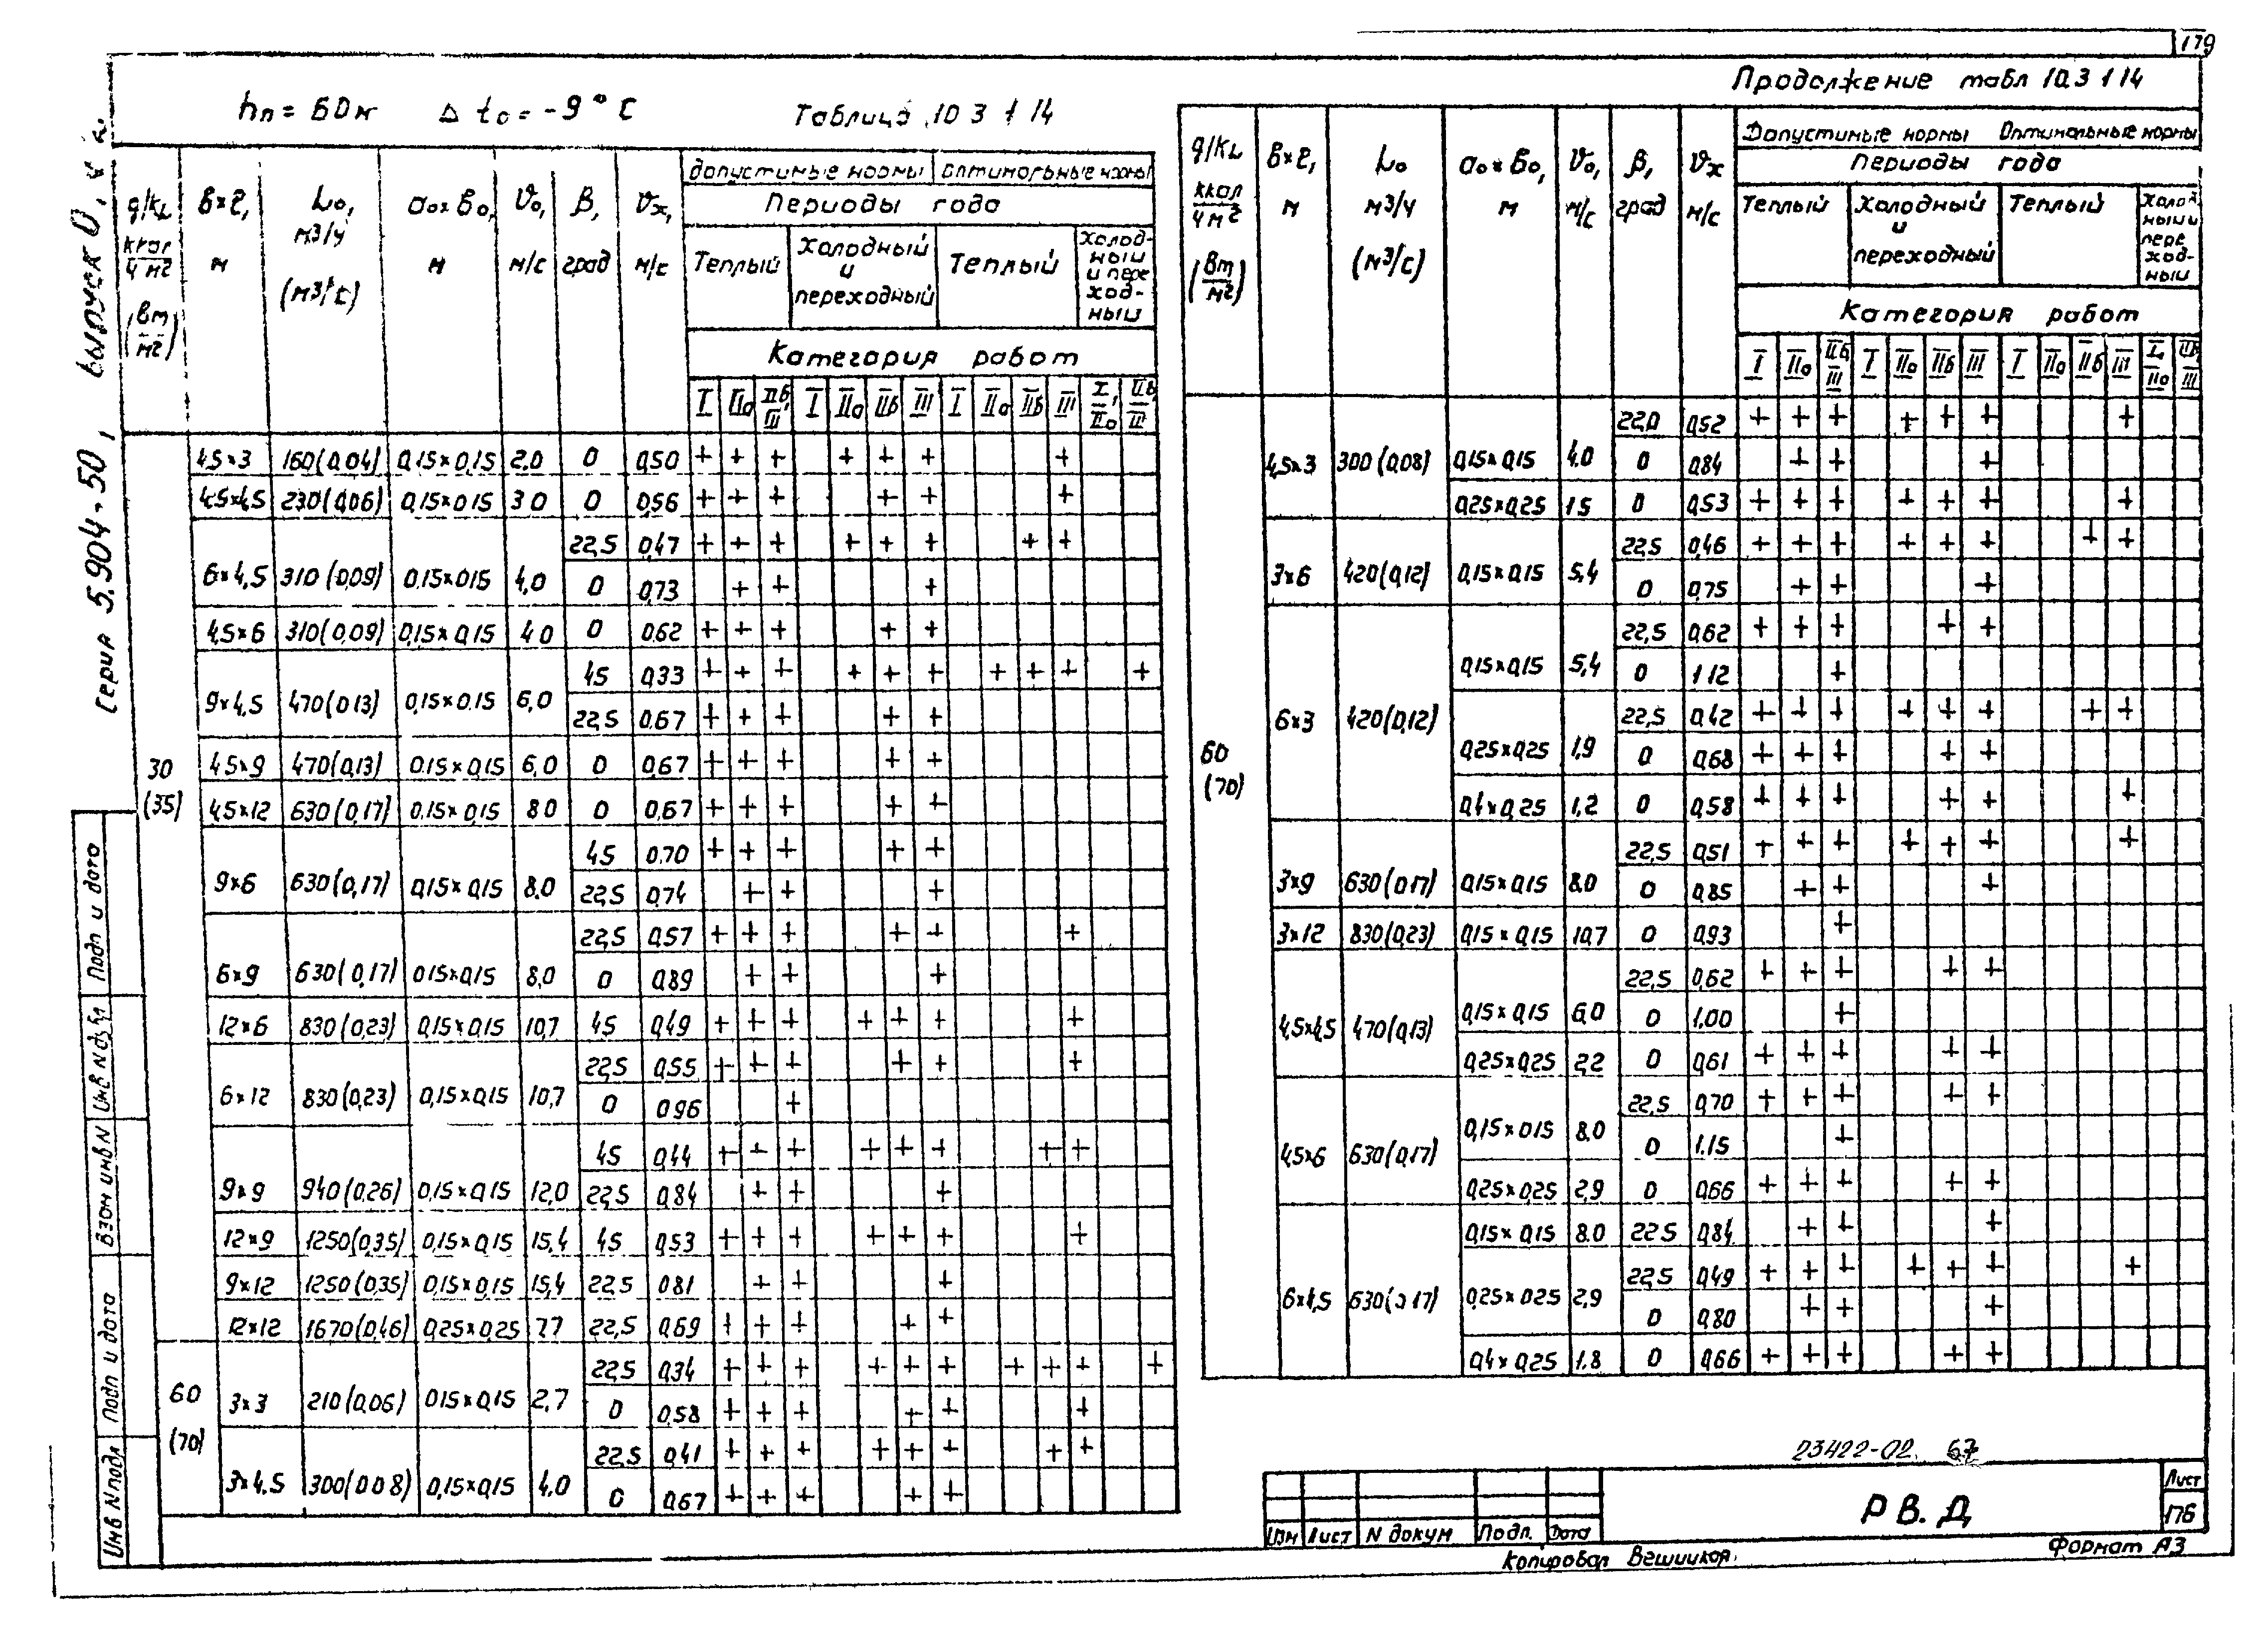 179
Серия 5.904-50, выпуск 0, ч 2.
hп = 60м Δ to = -9°С Таблица 10 3 1 14
q/kL ккал/ч м2 (Вт/м2) | в×г, м | Lо, м3/ч (м3/с) | ао×во, м | υо, м/с | β, град | υх, м/с | Допустимые нормы | Оптимальные нормы
Периоды года
Теплый | Холодный и переходный | Теплый | Холодный и переходный
Категория работ
I | IIа | IIб, III | I | IIа | IIб | III | I | IIа | IIб | III | I, IIа | IIб, III
30 (35)
4,5×3 | 160(0,04) | 0,15×0,15 | 2,0 | 0 | 0,50 | + | + | + | | + | + | + | | | | + | |
4,5×4,5 | 230(0,06) | 0,15×0,15 | 3 0 | 0 | 0,56 | + | + | + | | | + | + | | | | + | |
6×4,5 | 310 (0,09) | 0,15×0,15 | 4,0 | 22,5 | 0,47 | + | + | + | | + | + | + | | | + | + | |
0 | 0,73 | | + | + | | | | + | | | | | |
4,5×6 | 310(0,09) | 0,15×0,15 | 4 0 | 0 | 0,62 | + | + | + | | | + | + | | | | | |
9×4,5 | 470(0 13) | 0,15×0,15 | 6,0 | 45 | 0,33 | + | + | + | | + | + | + | | + | + | + | | +
22,5 | 0,67 | + | + | + | | | + | + | | | | | |
4,5×9 | 470(0,13) | 0,15×0,15 | 6,0 | 0 | 0,67 | + | + | + | | | + | + | | | | | |
4,5×12 | 630(0,17) | 0,15×0,15 | 8 0 | 0 | 0,67 | + | + | + | | | + | + | | | | | |
9×6 | 630(0,17) | 0,15×0,15 | 8,0 | 45 | 0,70 | + | + | + | | | + | + | | | | | |
22,5 | 0,74 | | + | + | | | | + | | | | | |
6×9 | 630(0,17) | 0,15×0,15 | 8,0 | 22,5 | 0,57 | + | + | + | | | + | + | | | | + | |
0 | 0,89 | | + | + | | | | + | | | | | |
12×6 | 830(0,23) | 0,15×0,15 | 10,7 | 45 | 0,49 | + | + | + | | + | + | + | | | | + | |
6×12 | 830(0,23) | 0,15×0,15 | 10,7 | 22,5 | 0,55 | + | + | + | | | + | + | | | | + | |
0 | 0,96 | | | + | | | | | | | | | |
9×9 | 940(0,26) | 0,15×0,15 | 12,0 | 45 | 0,44 | + | + | + | | + | + | + | | | + | + | |
22,5 | 0,84 | | + | + | | | | + | | | | | |
12×9 | 1250(0,35) | 0,15×0,15 | 15,4 | 45 | 0,53 | + | + | + | | + | + | + | | | | + | |
9×12 | 1250(0,35) | 0,15×0,15 | 15,4 | 22,5 | 0,81 | | + | + | | | | + | | | | | |
12×12 | 1670(0,46) | 0,25×0,25 | 7,7 | 22,5 | 0,69 | + | + | + | | | + | + | | | | | |
60 (70)
3×3 | 210(0,06) | 0,15×0,15 | 2,7 | 22,5 | 0,34 | + | + | + | | + | + | + | | + | + | + | | +
0 | 0,58 | + | + | + | | | + | + | | | | + | |
3×4,5 | 300(0 08) | 0,15×0,15 | 4,0 | 22,5 | 0,41 | + | + | + | | + | + | + | | | + | + | |
0 | 0,67 | + | + | + | | | + | + | | | | | |
Продолжение табл 10.3 1 14
q/kL ккал/ч м2 (Вт/м2) | в×г, м | Lо м3/ч (м3/с) | ао×во, м | υо, м/с | β, град | υх м/с | Допустимые нормы | Оптимальные нормы
Периоды года
Теплый | Холодный и переходный | Теплый | Холодный и переходный
Категория работ
I | IIа | IIб III | I | IIа | IIб | III | I | IIа | IIб | III | I, IIа | IIб, III
60 (70)
4,5×3 | 300 (0,08) | 0,15×0,15 | 4,0 | 22,0 | 0,52 | + | + | + | | + | + | + | | | | + | |
0 | 0,84 | | + | + | | | | + | | | | | |
0,25×0,25 | 1 5 | 0 | 0,53 | + | + | + | | + | + | + | | | | + | |
3×6 | 420(0,12) | 0,15×0,15 | 5,4 | 22,5 | 0,46 | + | + | + | | + | + | + | | | + | + | |
0 | 0,75 | | + | + | | | | + | | | | | |
6×3 | 420(0,12) | 0,15×0,15 | 5,4 | 22,5 | 0,62 | + | + | + | | | + | + | | | | | |
0 | 1 12 | | | + | | | | | | | | | |
0,25×0,25 | 1,9 | 22,5 | 0,42 | + | + | + | | + | + | + | | | + | + | |
0 | 0,68 | + | + | + | | | + | + | | | | | |
0,4×0,25 | 1,2 | 0 | 0,58 | + | + | + | | | + | + | | | | + | |
3×9 | 630(0,17) | 0,15×0,15 | 8,0 | 22,5 | 0,51 | + | + | + | | + | + | + | | | | + | |
0 | 0,85 | | + | + | | | | + | | | | | |
3×12 | 830(0,23) | 0,15×0,15 | 10,7 | 0 | 0,93 | | | + | | | | | | | | | |
4,5×4,5 | 470(0,13) | 0,15×0,15 | 6,0 | 22,5 | 0,62 | + | + | + | | | + | + | | | | | |
0 | 1,00 | | | + | | | | | | | | | |
0,25×0,25 | 2,2 | 0 | 0,61 | + | + | + | | | + | + | | | | | |
4,5×6 | 630(0,17) | 0,15×0,15 | 8.0 | 22,5 | 0,70 | + | + | + | | | + | + | | | | | |
0 | 1.15 | | | + | | | | | | | | | |
0,25×0,25 | 2,9 | 0 | 0,66 | + | + | + | | | + | + | | | | | |
6×4,5 | 630(0 17) | 0,15×0,15 | 8.0 | 22 5 | 0,84 | | + | + | | | | + | | | | | |
0,25×0,25 | 2,9 | 22,5 | 0,49 | + | + | + | | + | + | + | | | | + | |
0 | 0,80 | | + | + | | | | + | | | | | |
0,4×0,25 | 1.8 | 0 | 0,66 | + | + | + | | | + | + | | | | | |
23422-02. 67
Изм Лист N докум Подп. Дата
РВ.Д
Лист
176
Копировал
Формат А3
Инв N подл Подп и дата Взам инв N Инв N дубл Подп и дата